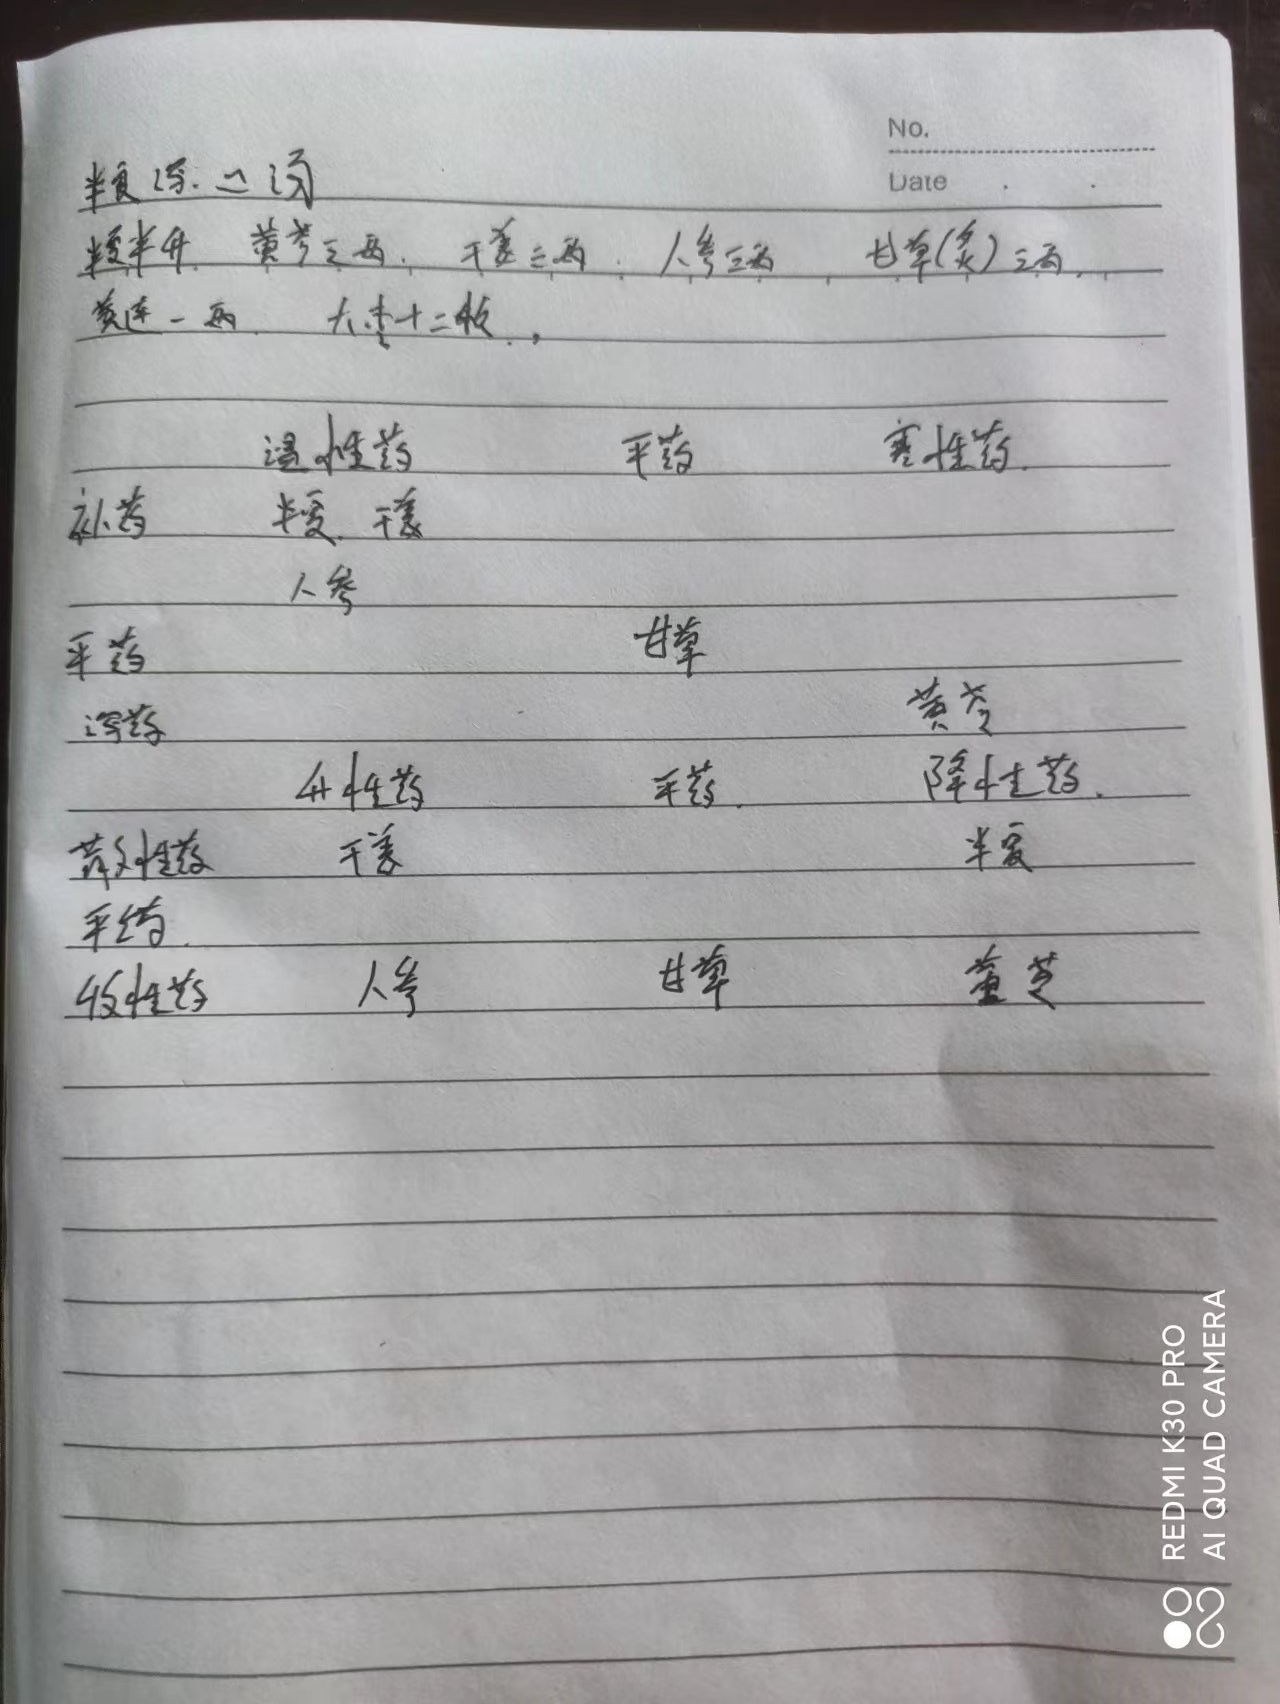 No.
Date
半夏泻心汤
半夏半升 黄芩三两. 干姜三两. 人参三两, 甘草(炙)三两,
黄连一两. 大枣十二枚.,
温性药 平药 寒性药.
补药 半夏. 干姜
人参
平药 甘草
泻药 黄芩
升性药 平药. 降性药.
散性药 干姜 半夏
平药.
收性药 人参 甘草 黄芩
REDMI K30 PRO
AI QUAD CAMERA